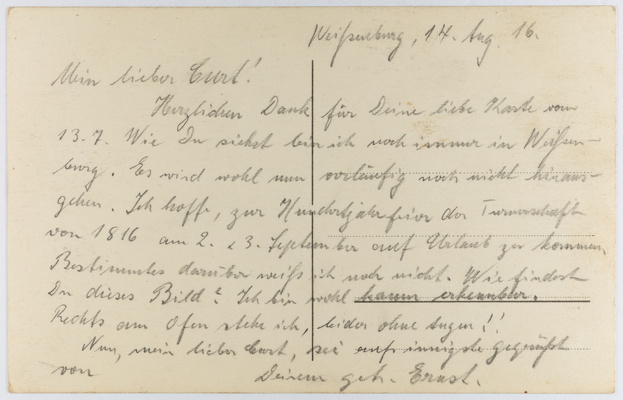 Weißenburg, 14. Aug. 16.
Mein lieber Curt!
Herzlichen Dank für Deine liebe Karte vom
13.7. Wie Du siehst bin ich noch immer in Weißen-
burg. Es wird wohl nun vorläufig noch nicht hinaus-
gehen. Ich hoffe, zur Hundertjahrfeier der Turnerschaft
von 1816 am 2. & 3. September auf Urlaub zu kommen.
Bestimmtes darüber weiß ich noch nicht. Wie findest
Du dieses Bild? Ich bin wohl kaum erkennbar.
Rechts am Ofen stehe ich, leider ohne Augen!!
Nun, mein lieber Curt, sei aufs innigste gegrüßt
von Deinem getr. Ernst.